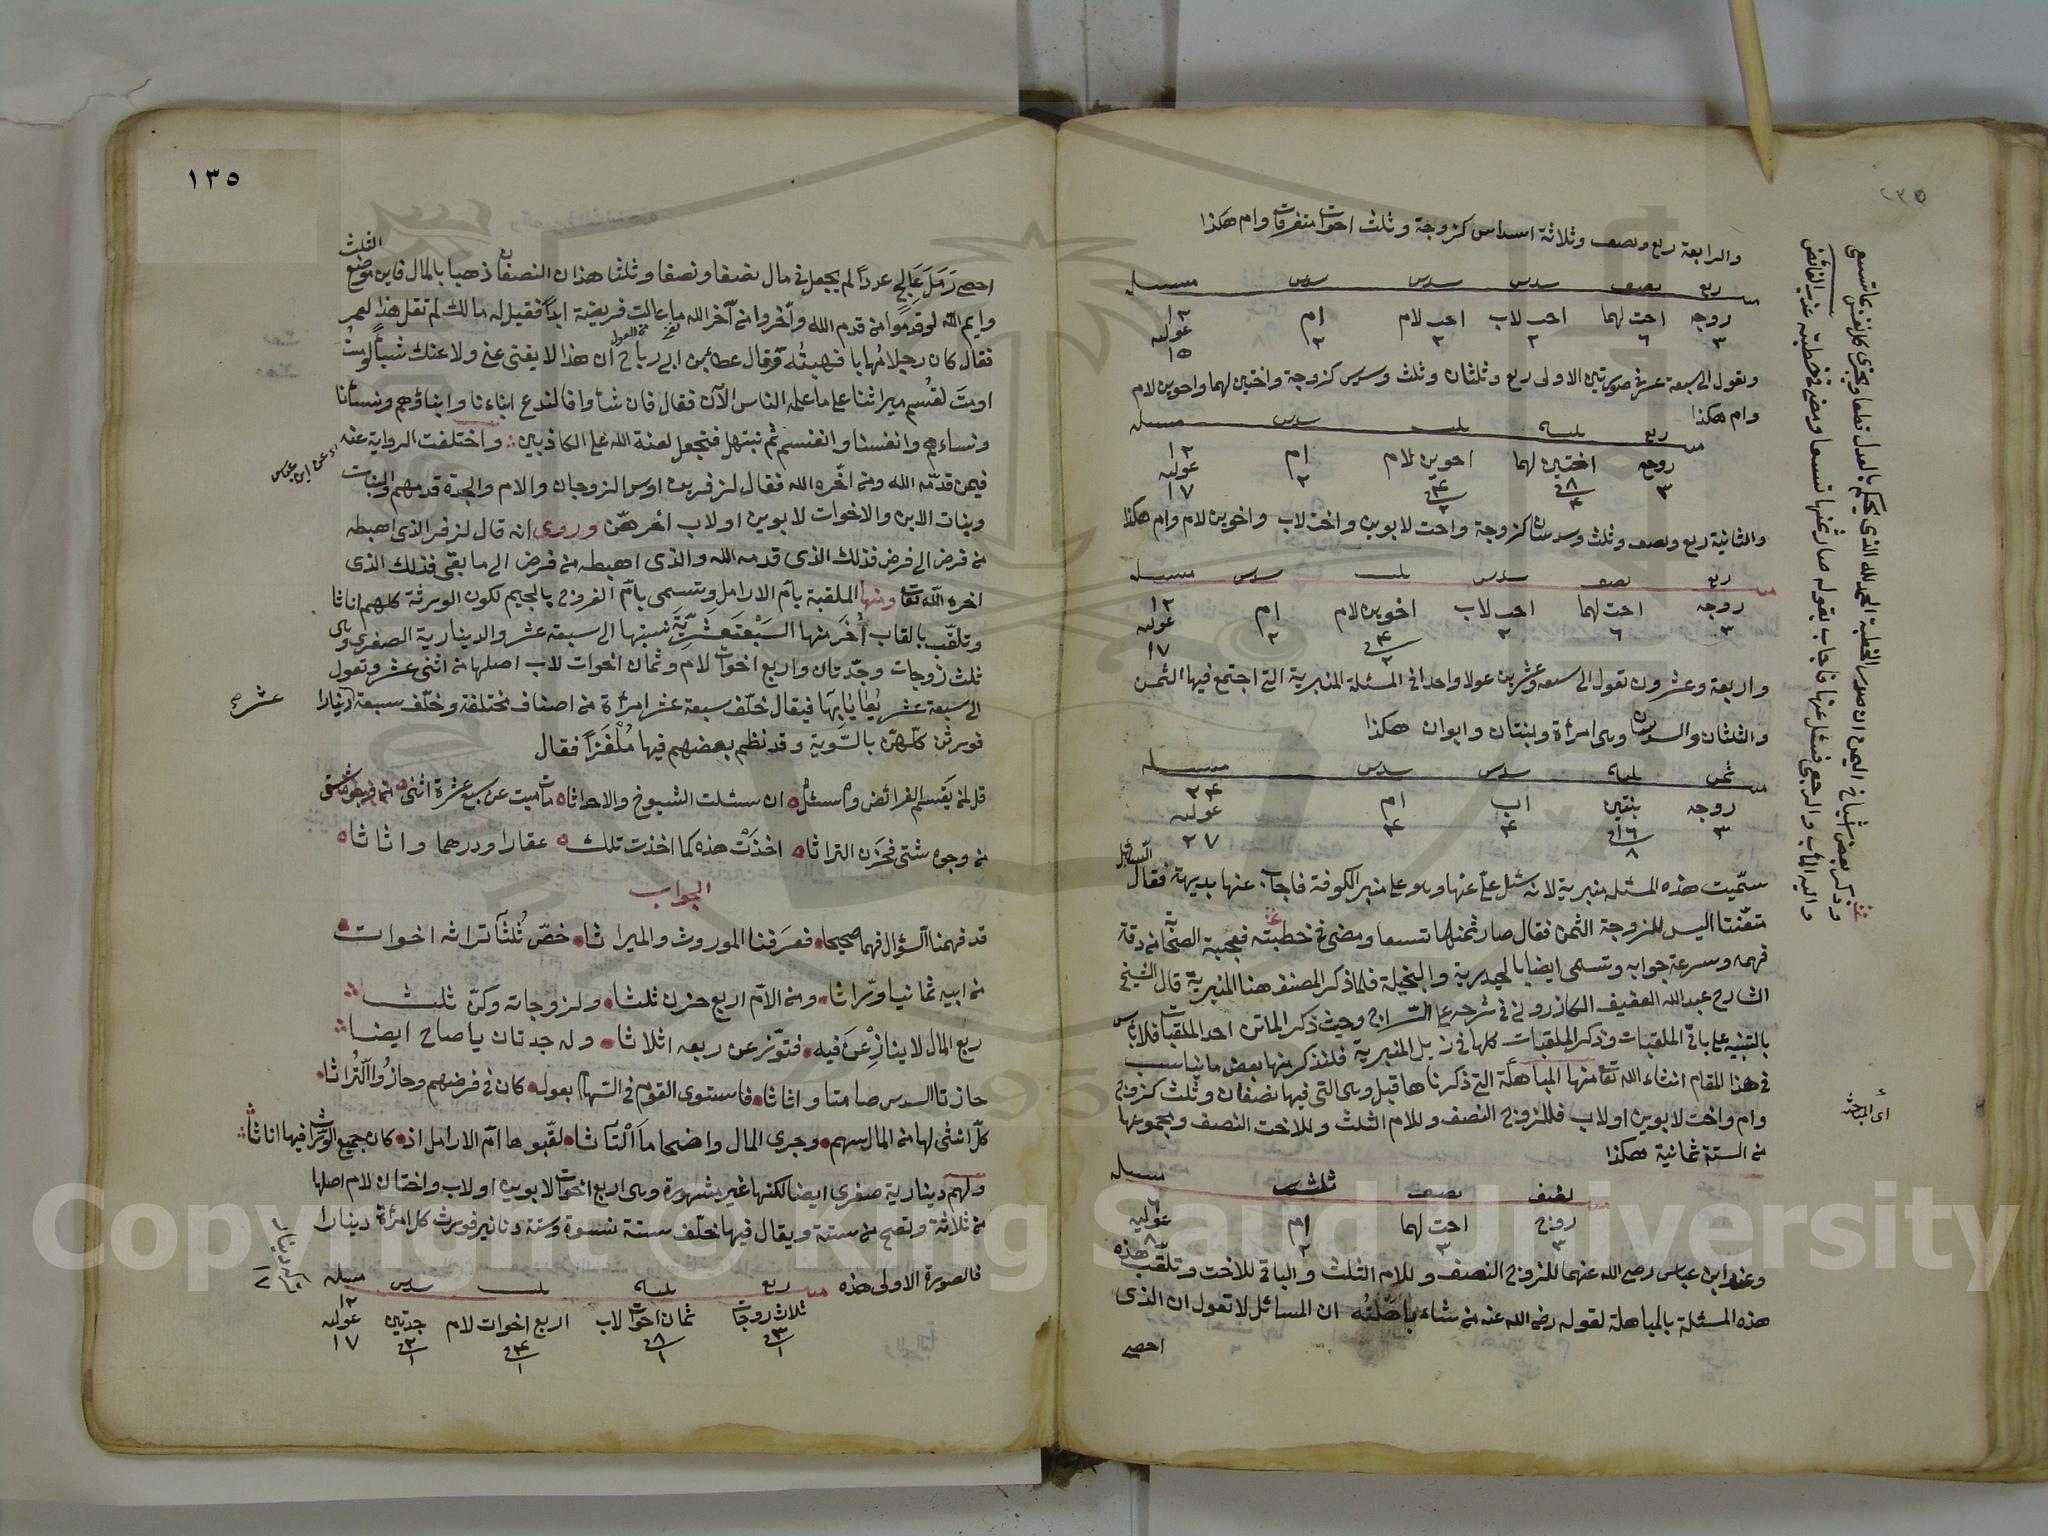 والرابعة ربع ونصف وثلاثة اسداس كزوجة وثلث اخوات متفرقات وام هكذا
ربع نصف سدس سدس سدس مسئله
زوجه اخت لهما اخت لاب اخت لام ام ١٢
٣ ٦ ٢ ٢ ٢ عوليه
١٥
وتعول الى سبعة عشر في صورتين الاولى ربع وثلثان وثلث وسدس كزوجة واختين لهما واخوين لام
وام هكذا
ربع ثلثان ثلث سدس مسئله
زوجه اختين لهما اخوين لام ام ١٢
٣ ٨ ٤ ٢ عوليه
١٧
والثانية ربع ونصف وثلث وسدسان كزوجة واخت لابوين واخت لاب واخوين لام وام هكذا
ربع نصف سدس ثلث سدس مسئله
زوجه اخت لهما اخت لاب اخوين لام ام ١٢
٣ ٦ ٢ ٤ ٢ عوليه
١٧
واربعة وعشرون تعول الى سبعة وعشرين عولا واحدا في المسئلة المنبرية التي اجتمع فيها الثمن
والثلثان والسدسان وهى امرأة وبنتان وابوان هكذا
ثمن ثلثان سدس سدس مسئله
زوجه بنتين اب ام ٢٤
٣ ١٦ ٤ ٤ عوليه
٨ ٢٧
سمّيت هذه المسئله منبرية لانه سئل علىّ عنها وهو على منبر الكوفة فاجاب عنها بديهة فقال السائل
متعنتا اليس للزوجة الثمن فقال صار ثمنها تسعا ومضى في خطبته فتعجبة الصحابة من دقة
فهمه وسرعة جوابه وتسمى ايضا بالحيدرية والبخيلة فلما ذكر المصنف هنا المنبرية قال الشيخ
الشارح عبد الله العفيف الكازروني في شرحه على السراج وحيث ذكر الماتن احد الملقبات فلا باس
بالتنبيه على باقي الملقبات وذكر الملقبات كلها في ذيل المنبرية فلنذكر منها بعض ما يناسب
في هذا المقام انشاء الله تعالى منها المباهلة التي ذكرناها قبل وهى التي فيها نصفان وثلث كزوج
وام واخت لابوين او لاب فللزوج النصف وللام الثلث وللاخت النصف ومجموعها
من الستة ثمانية هكذا
نصف نصف ثلث مسئله
زوج اخت لهما ام ٦
٣ ٣ ٢ عوليه
٨
وعند ابن عباس رضي الله عنهما للزوج النصف وللام الثلث والباقي للاخت وتلقب هذه
هذه المسئلة بالمباهلة لقوله رضي الله عنه من شاء باهلته ان المسائل لا تعول ان الذى
احصى
١٣٥
احصى رمل عالج عددا لم يجعل في مال نصفا ونصفا وثلثا هذان النصفان ذهبا بالمال فاين موضع الثلث
وايم الله لو قدموا من قدم الله واخروا من اخر الله ما عالت فريضة ابدا فقيل له مالك لم تقل هذا لعمر
فقال كان رجلا مهابا فهبته فقال عطاء بن ابى رباح ان هذا لا يغنى عنى ولا عنك شيئا لو مت
او مت لقسم ميراثنا على ما عليه الناس الآن فقال فان شاؤا فلندع ابناءنا وابناؤهم ونساءنا
ونساءهم وانفسنا وانفسهم ثم نبتهل فنجعل لعنة الله على الكاذبين واختلفت الرواية عنه
اى عن ابن عباس
فيمن قدمه الله ومن اخّره الله فقال لزفر بن اوس الزوجان والام والجدة قدمهم والبنات
وبنات الابن والاخوات لابوين او لاب اخرهن وروى انه قال لزفر الذى اهبطه
من فرض الى فرض فذلك الذى قدمه الله والذى اهبطه من فرض الى ما بقى فذلك الذى
اخره الله تعالى ومنها الملقبة بام الارامل وتسمى بام الفروج بالجيم لكون الورثة كلهم اناثا
وتلقب بالقاب أخر منها السبعتعشرية نسبتها الى سبعة عشر والدينارية الصغرى وهى
ثلث زوجات وجدتان واربع اخوات لام وثمان اخوات لاب اصلها من اثنى عشر وتعول
الى سبعة عشر يعايا بها فيقال خلّف سبعة عشر امرأة من اصناف مختلفة وخلّف سبعة دينارا
عشر
فورثن كلهن بالسوية وقد نظم بعضهم فيها ملغزا فقال
قل لمن يقسم الفرائض واسئل ان سئلت الشيوخ والاحداثا مات ميت عن سبع عشرة انثى
من وجوه شتى فحزن التراثا اخذت هذه كما اخذت تلك عقارا ودرهما واثاثا
الجواب
قد فهمنا السؤال فهما صحيحا فعرفنا الموروث والميراثا خصّ ثلثا تراثه اخوات
من ابيه ثمانيا ورّاثا ومن الام اربع حزن ثلثا ولزوجاته وكنّ ثلث
ربع المال لا ينازعن فيه فتوزعن ربعه اثلاثا وله جدتان يا صاح ايضا
حازتا السدس صامتا واثاثا فاستوى القوم في السهام بعوله كان في فرضهم وحازوا التراثا
كل انثى لها من المال سهم وجرى المال واضحا لقبوها ام الارامل اذ كان جميع الوراث فيها اناثا
ولهم دينارية صغرى ايضا لكنها غير مشهورة وهى اربع اخوات لابوين او لاب واختان لام اصلها
من ثلاثة وتصح من ستة ويقال فيها خلّف ستة نسوة وستة دنانير فورث كل امرأة دينارا
فالصورة الاولى هذه
ربع ثلثان ثلث سدس مسئله
ثلاث زوجات ثمان اخوات لاب اربع اخوات لام جدتين ١٢
٣ ٨ ٤ ٢ عوليه
١ ١ ١ ١ ١٧
Copyright © King Saud University
1957